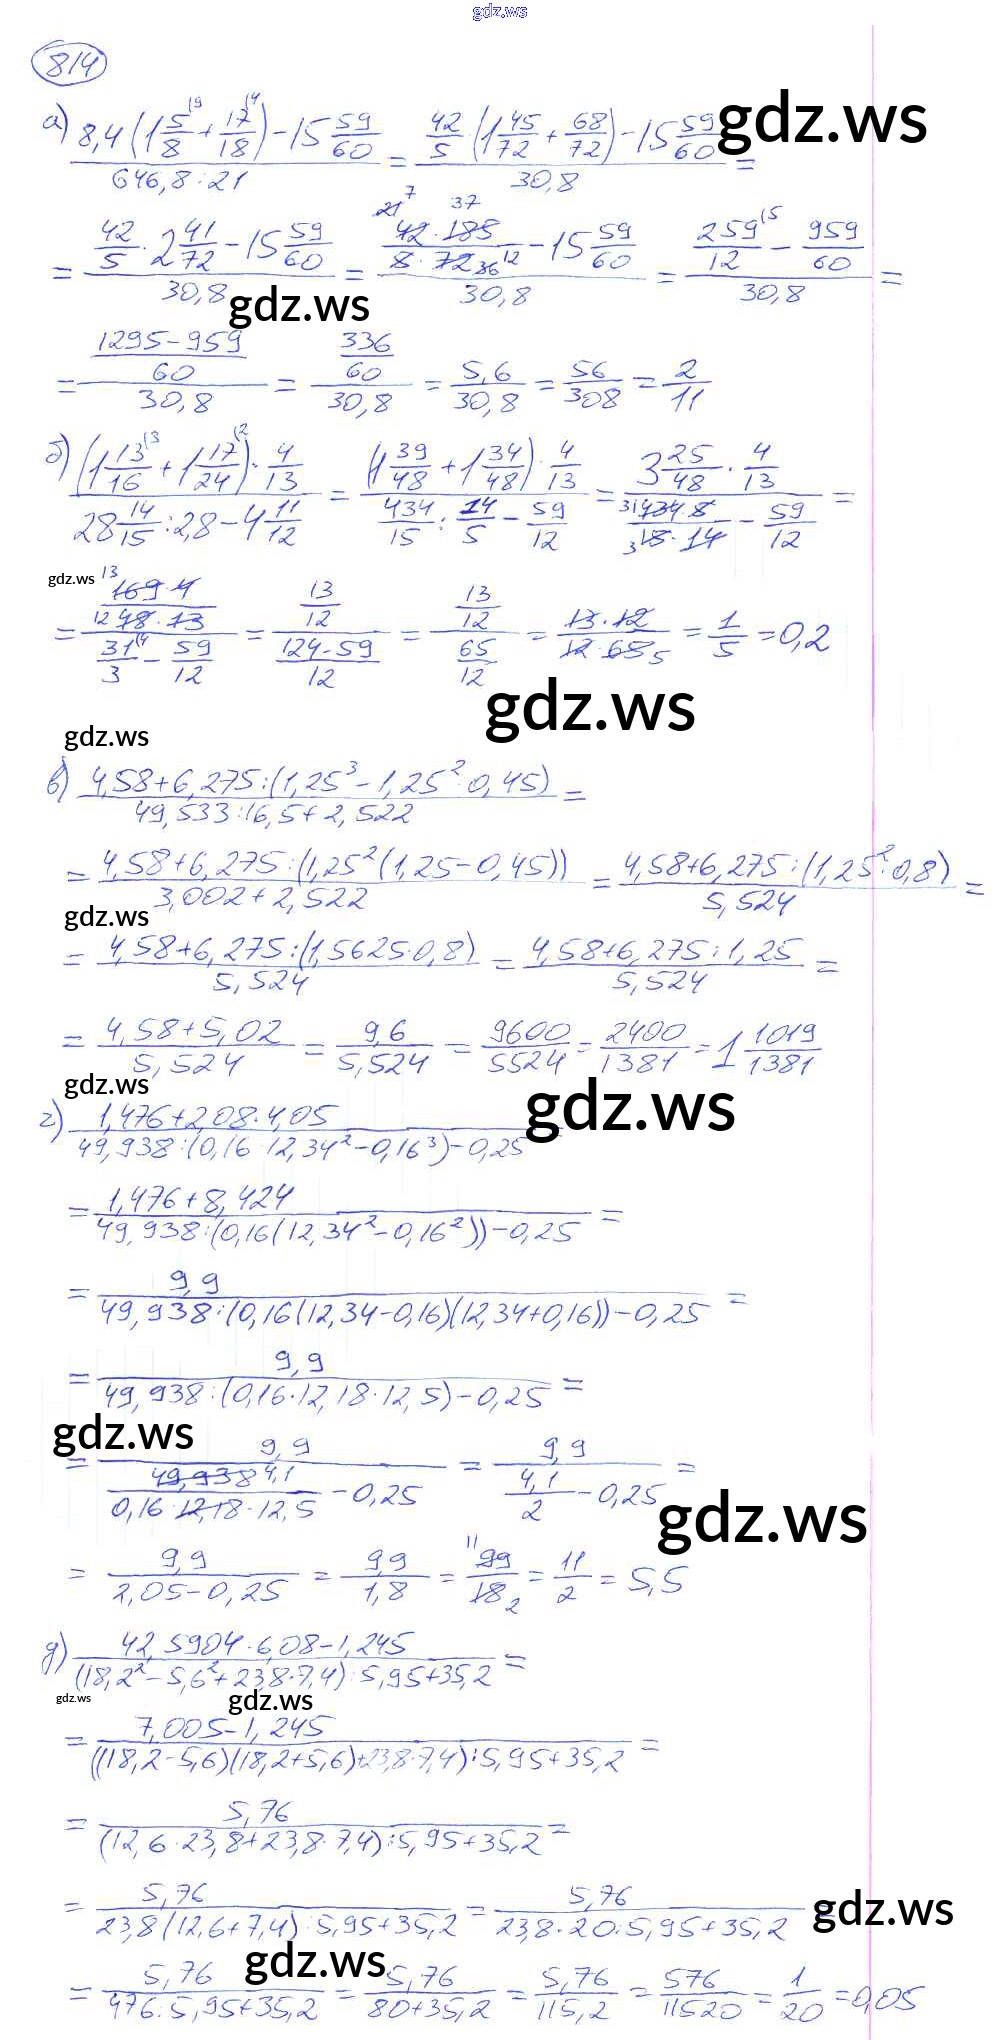 gdz.ws
814
а) (8,4(1 5/8 + 17/18) - 15 59/60) / (646,8:21) = (42/5 · (1 45/72 + 68/72) - 15 59/60) / 30,8 = gdz.ws
= (42/5 · 2 41/72 - 15 59/60) / 30,8 = (42·185 / 8·72 - 15 59/60) / 30,8 = (259/12 - 959/60) / 30,8 =
gdz.ws
= ((1295-959)/60) / 30,8 = (336/60) / 30,8 = 5,6/30,8 = 56/308 = 2/11
б) ((1 13/16 + 1 17/24) · 4/13) / (28 14/15 : 2,8 - 4 11/12) = ((1 39/48 + 1 34/48) · 4/13) / (434/15 : 14/5 - 59/12) = (3 25/48 · 4/13) / (434·8 / 15·14 - 59/12) =
gdz.ws
= (169·4 / 48·13) / (31/3 - 59/12) = (13/12) / ((124-59)/12) = (13/12) / (65/12) = 13·12 / 12·65 = 1/5 = 0,2
gdz.ws
gdz.ws
в) (4,58+6,275:(1,25³-1,25²·0,45)) / (49,533:16,5+2,522) =
= (4,58+6,275:(1,25²(1,25-0,45))) / (3,002+2,522) = (4,58+6,275:(1,25²·0,8)) / 5,524 =
gdz.ws
= (4,58+6,275:(1,5625·0,8)) / 5,524 = (4,58+6,275:1,25) / 5,524 =
= (4,58+5,02) / 5,524 = 9,6/5,524 = 9600/5524 = 2400/1381 = 1 1019/1381
gdz.ws
gdz.ws
г) (1,476+2,08·4,05) / (49,938:(0,16·12,34²-0,16³)-0,25)
= (1,476+8,424) / (49,938:(0,16(12,34²-0,16²))-0,25) =
= 9,9 / (49,938:(0,16(12,34-0,16)(12,34+0,16))-0,25) =
= 9,9 / (49,938:(0,16·12,18·12,5)-0,25) =
gdz.ws
= 9,9 / (49,938 4,1 / 0,16·12,18·12,5 - 0,25) = 9,9 / (4,1/2 - 0,25) =
gdz.ws
= 9,9 / (2,05-0,25) = 9,9/1,8 = 99/18 = 11/2 = 5,5
д) (42,5904:6,08-1,245) / ((18,2²-5,6²+23,8·7,4):5,95+35,2) =
gdz.ws
gdz.ws
= (7,005-1,245) / (((18,2-5,6)(18,2+5,6)+23,8·7,4):5,95+35,2) =
= 5,76 / ((12,6·23,8+23,8·7,4):5,95+35,2) =
= 5,76 / (23,8(12,6+7,4):5,95+35,2) = 5,76 / (23,8·20:5,95+35,2) =
gdz.ws
gdz.ws
= 5,76 / (476:5,95+35,2) = 5,76 / (80+35,2) = 5,76/115,2 = 576/11520 = 1/20 = 0,05